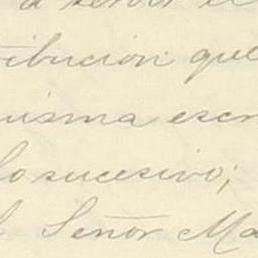 tribucion que
misma escr
lo sucesivo;
l Señor Ma